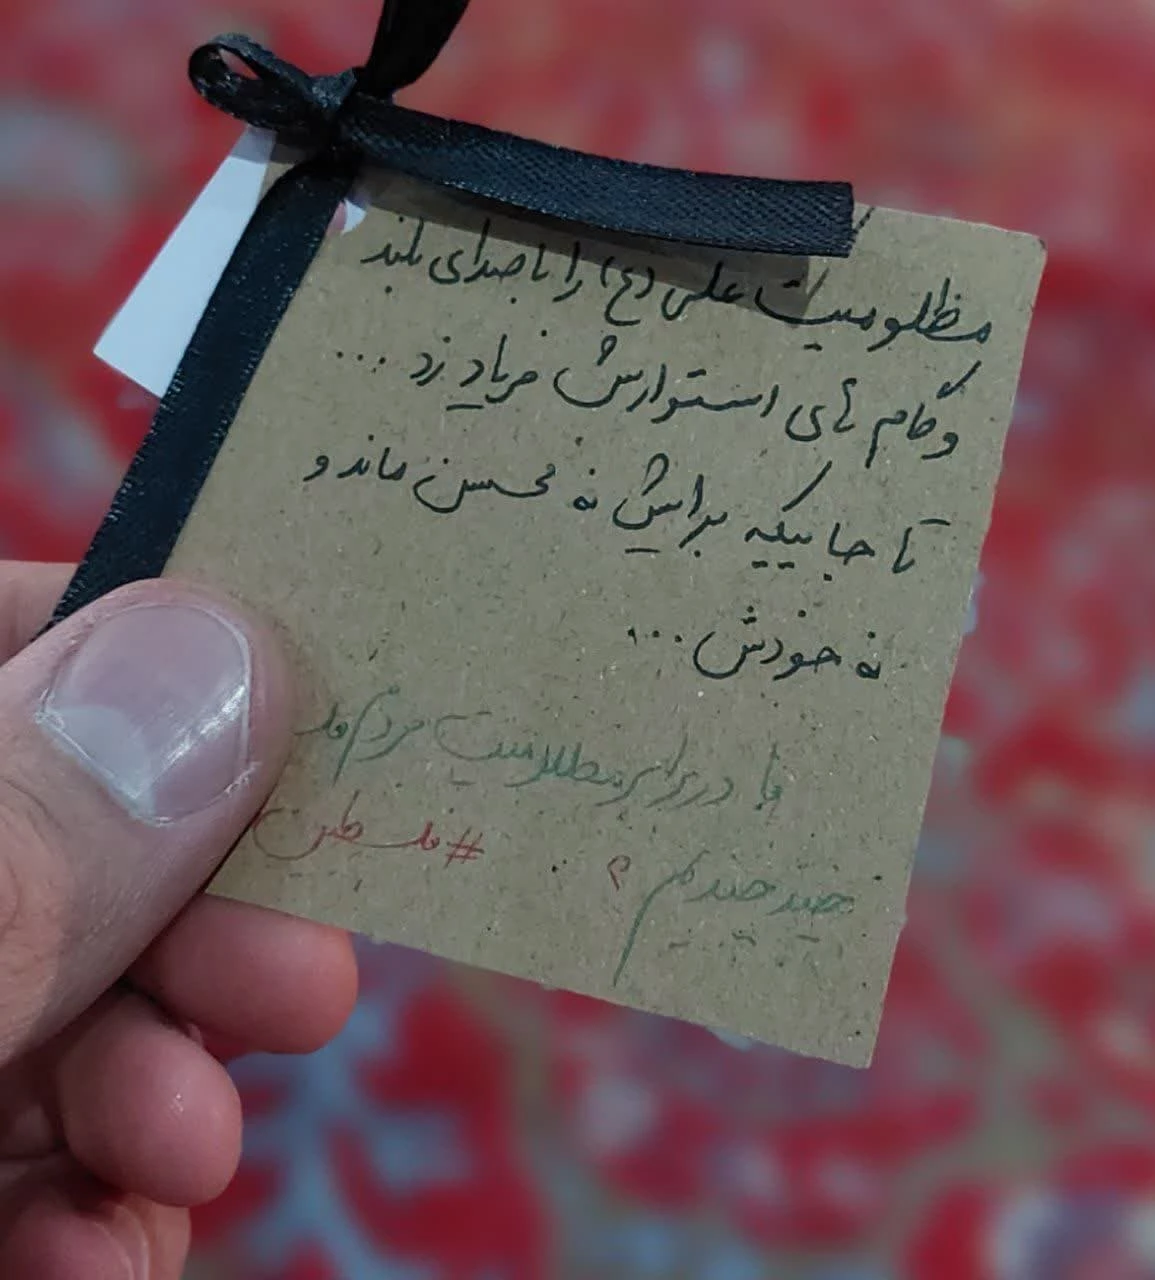 مظلومیت علی (ع) را با صدای بلند
و گام های استوارش فریاد زد ...
تا جاییکه برایش نه محسن ماند و
نه خودش ...
ما در برابر مظلومیت مردم
چند چندیم ؟
#فلسطین